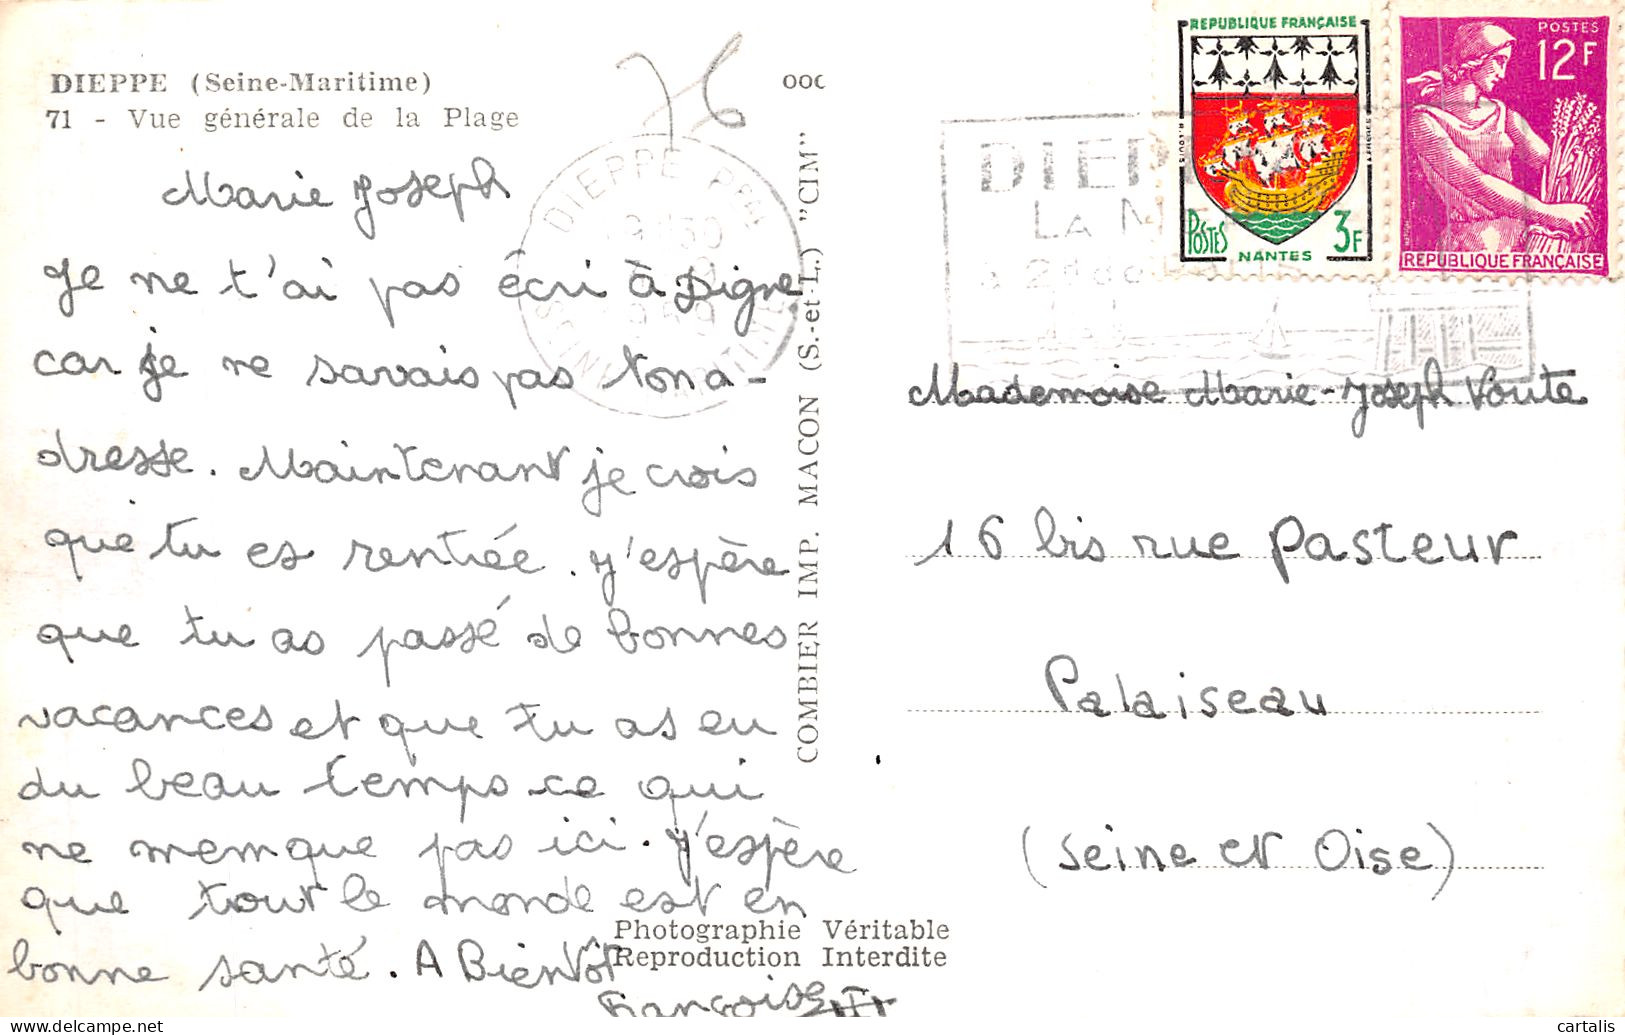 DIEPPE (Seine-Maritime)
71 - Vue générale de la Plage
76
Marie Joseph
Je ne t'ai pas écri à Digne
car je ne savais pas ton a-
dresse. Maintenant je crois
que tu es rentrée. J'espère
que tu as passé de bonnes
vacances et que tu as eu
du beau temps ce qui
ne memque pas ici. J'espère
que tout le monde est en
bonne santé. A Bientôt
Françoise
COMBIER IMP. MACON (S.-et-L.) "CIM"
Photographie Véritable
Reproduction Interdite
DIEPPE
SEINE MARITIME
DIEPPE
LA M
REPUBLIQUE FRANÇAISE
POSTES 3F
NANTES
POSTES
12F
REPUBLIQUE FRANÇAISE
Mademoise Marie-Joseph Voute
16 bis rue Pasteur
Palaiseau
(Seine et Oise)
cartalis